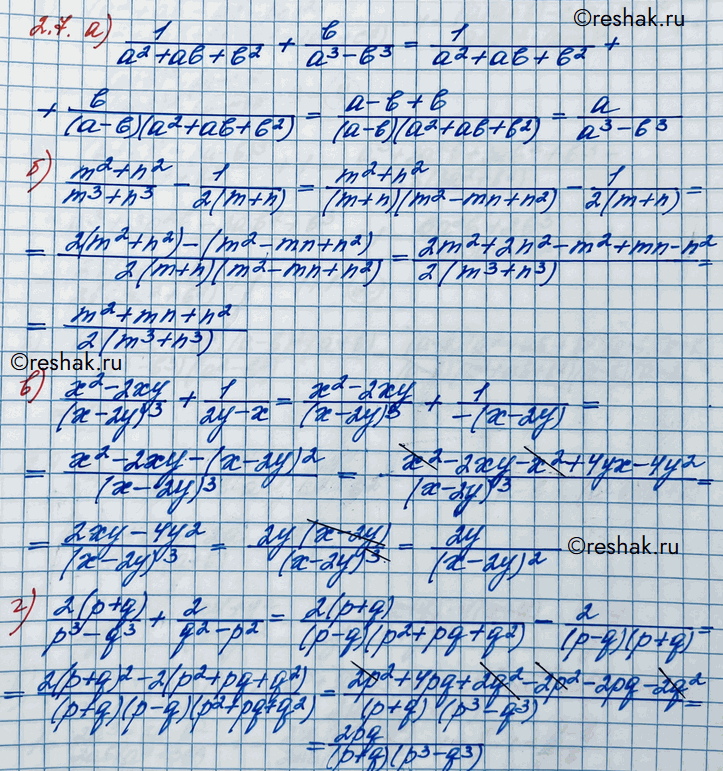 ©reshak.ru
2.7. а) 1/(a²+ab+b²) + b/(a³-b³) = 1/(a²+ab+b²) +
+ b/((a-b)(a²+ab+b²)) = (a-b+b)/((a-b)(a²+ab+b²)) = a/(a³-b³)
б) (m²+n²)/(m³+n³) - 1/(2(m+n)) = (m²+n²)/((m+n)(m²-mn+n²)) - 1/(2(m+n)) =
= (2(m²+n²)-(m²-mn+n²))/(2(m+n)(m²-mn+n²)) = (2m²+2n²-m²+mn-n²)/(2(m³+n³)) =
= (m²+mn+n²)/(2(m³+n³))
©reshak.ru
в) (x²-2xy)/(x-2y)³ + 1/(2y-x) = (x²-2xy)/(x-2y)³ + 1/(-(x-2y)) =
= (x²-2xy-(x-2y)²)/(x-2y)³ = (x²-2xy-x²+4yx-4y²)/(x-2y)³ =
= (2xy-4y²)/(x-2y)³ = 2y(x-2y)/(x-2y)³ = 2y/(x-2y)²
©reshak.ru
г) 2(p+q)/(p³-q³) + 2/(q²-p²) = 2(p+q)/((p-q)(p²+pq+q²)) - 2/((p-q)(p+q)) =
= (2(p+q)²-2(p²+pq+q²))/((p+q)(p-q)(p²+pq+q²)) = (2p²+4pq+2q²-2p²-2pq-2q²)/((p+q)(p³-q³)) =
= 2pq/((p+q)(p³-q³))